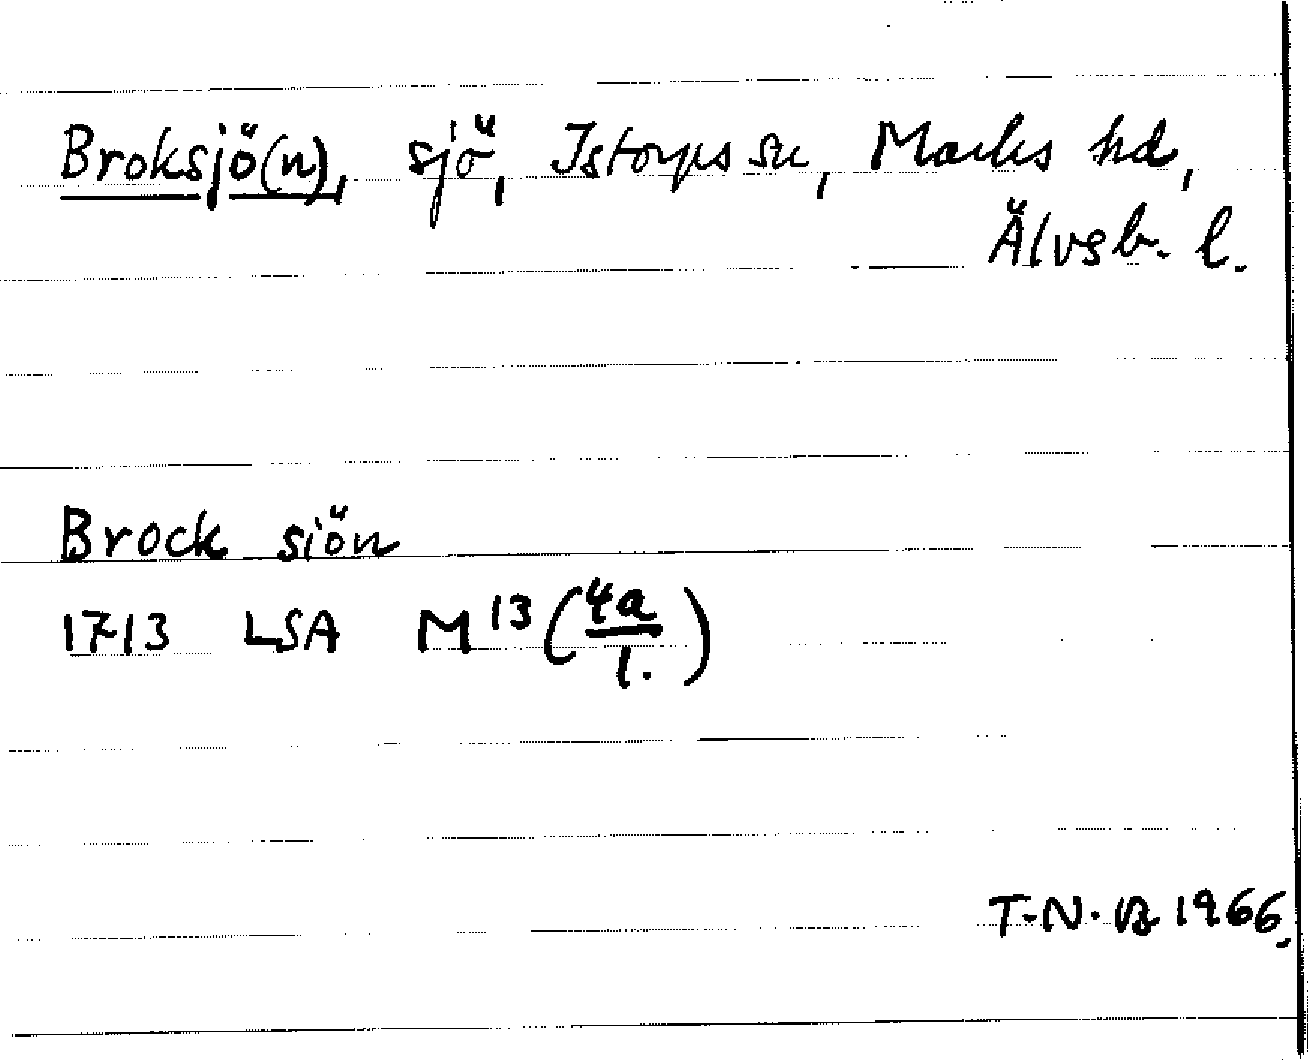 Broksjö(n), sjö, Istorps sn, Marks hd,
Älvsb. l.
Brock siön
1713 LSA M 13 (4a/1.)
T.N.B 1966.